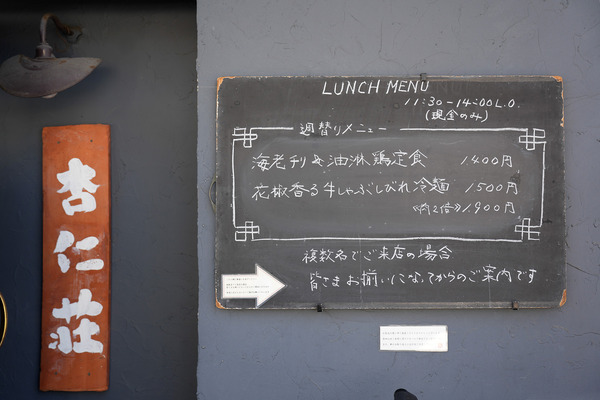 杏仁荘
LUNCH MENU
11:30-14:00 L.O.
(現金のみ)
週替りメニュー
海老チリ&油淋鶏定食 1400円
花椒香る牛しゃぶしびれ冷麺 1500円
《肉2倍》1.900円
複数名でご来店の場合
皆さまお揃いになってからのご案内です